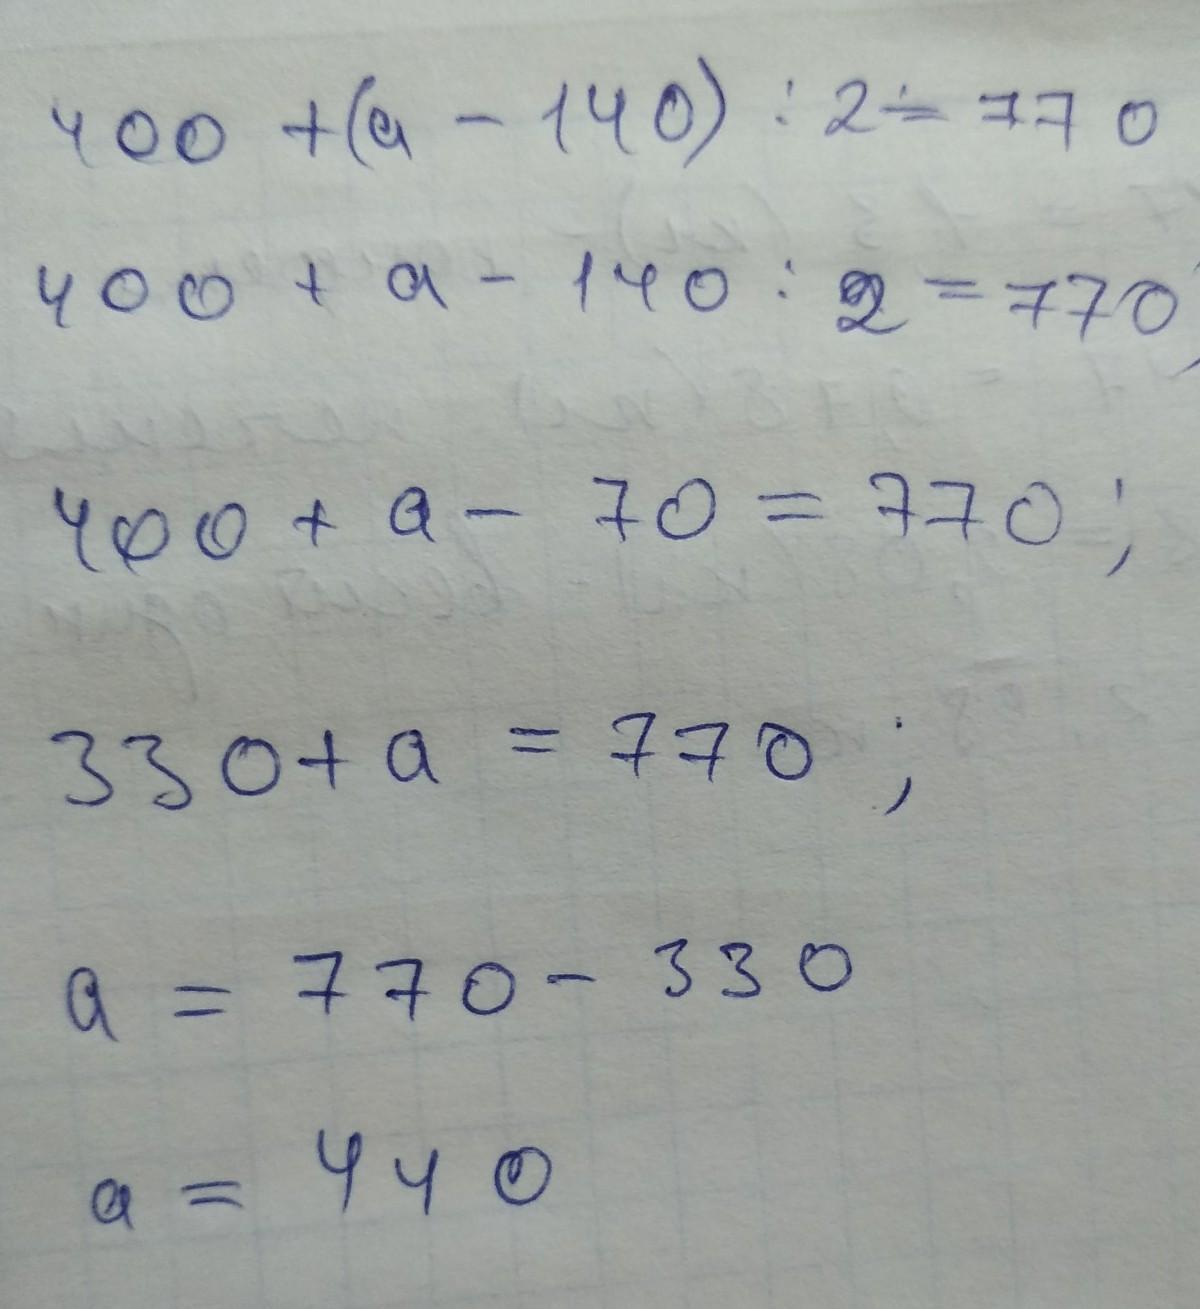 400 + (a - 140) : 2 = 770
400 + a - 140 : 2 = 770;
400 + a - 70 = 770;
330 + a = 770;
a = 770 - 330
a = 440